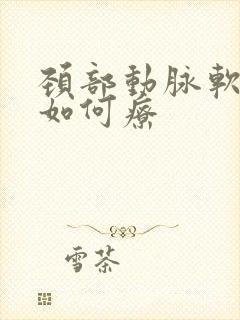 頚部動脉軟
如何療
雪茶